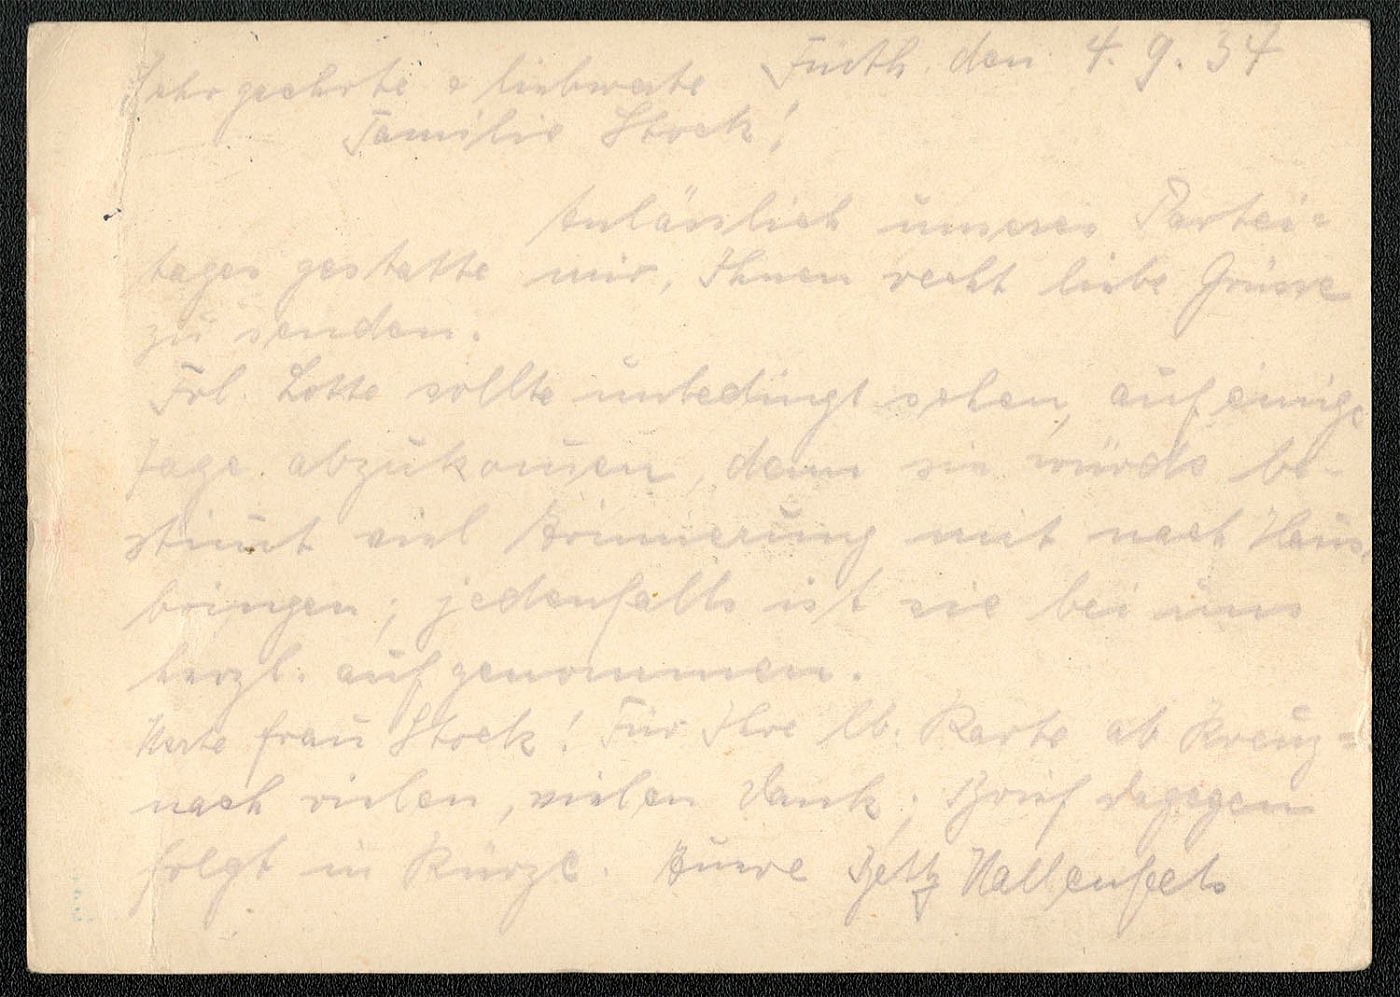 Fürth, den 4.9.34
Sehr geehrte & liebwerte
Familie Stock!
Anlässlich unseres Partei=
tages gestatte mir, Ihnen recht liebe Grüsse
zu senden.
Frl. Lotte sollte unbedingt sehen, auf einige
Tage abzukom̄en, denn sie würde be-
stim̄t viel Erinnerung mit nach Haus
bringen; jedenfalls ist sie bei uns
herzl. aufgenommen.
Werte Frau Stock! Für Ihre lb. Karte ab Kreuz=
nach vielen, vielen Dank; Brief dagegen
folgt in Kürze. Eure Betty Hallenfels